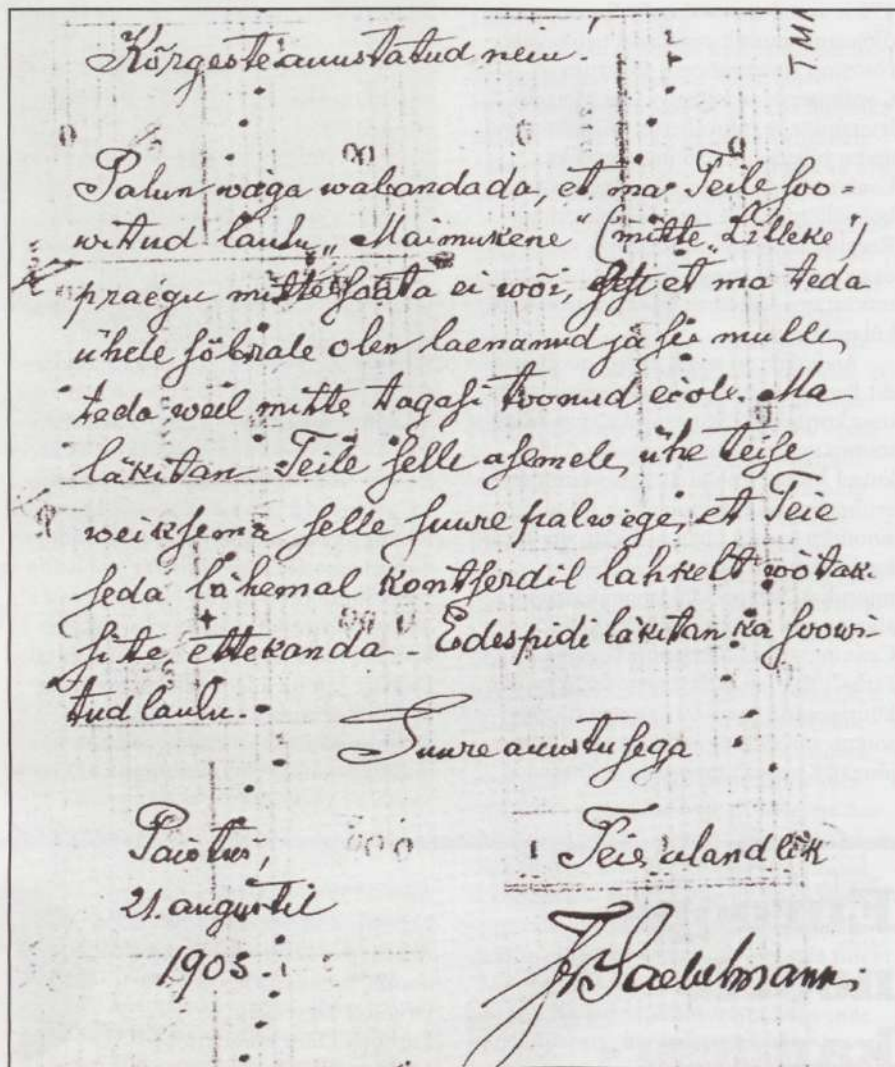 Kõrgeste auustatud neiu!
TMM
Palun wäga wabandada, et ma Teile soo-
witud laulu „Maimukene“ (mitte „Lilleke“)
praegu mitte saata ei wõi, sest et ma teda
ühele sõbrale olen laenanud ja see mulle
teda weel mitte tagasi toonud ei ole. Ma
läkitan Teile selle asemele ühe teise
weiksema selle suure palwega, et Teie
seda lähemal kontserdil lahkelt wõtak-
site ettekanda - Edespidi läkitan ka soowi-
tud laulu.
Suure auustusega
Paistus,
Teie alandlik
21. augustil
1903.
Fr Saebelmann.